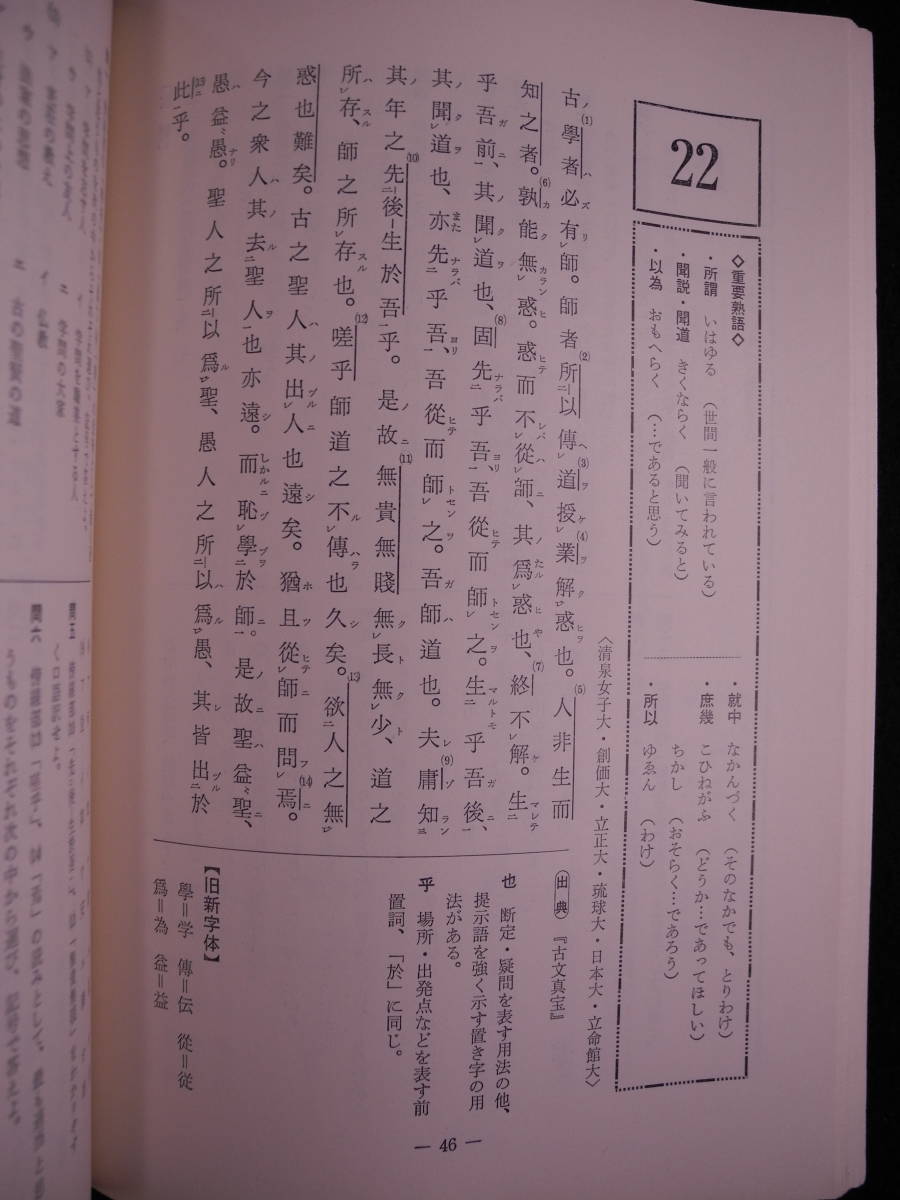 22
◇重要熟語◇
・所謂 いはゆる (世間一般に言われている)
・聞説・聞道 きくならく (聞いてみると)
・以為 おもへらく (…であると思う)
・就中 なかんづく (そのなかでも、とりわけ)
・庶幾 こひねがふ (どうか…であってほしい)
ちかし (おそらく…であろう)
・所以 ゆゑん (わけ)
〈清泉女子大・創価大・立正大・琉球大・日本大・立命館大〉
古學者必有師。師者所以傳道授業解惑也。人非生而
知之者。孰能無惑。惑而不從師、其爲惑也、終不解。生
乎吾前、其聞道也、固先乎吾、吾從而師之。生乎吾後、
其聞道也、亦先乎吾、吾從而師之。吾師道也。夫庸知
其年之先後生於吾乎。是故無貴無賤無長無少、道之
所存、師之所存也。嗟乎師道之不傳也久矣。欲人之無
惑也難矣。古之聖人其出人也遠矣。猶且從師而問焉。
今之衆人其去聖人也亦遠。而恥學於師。是故聖益〻聖、
愚益〻愚。聖人之所以爲聖、愚人之所以爲愚、其皆出於
此乎。
出典 『古文真宝』
也 断定・疑問を表す用法の他、
提示語を強く示す置き字の用
法がある。
乎 場所・出発点などを表す前
置詞、「於」に同じ。
【旧新字体】
學＝学 傳＝伝 從＝従
爲＝為 益＝益
— 46 —